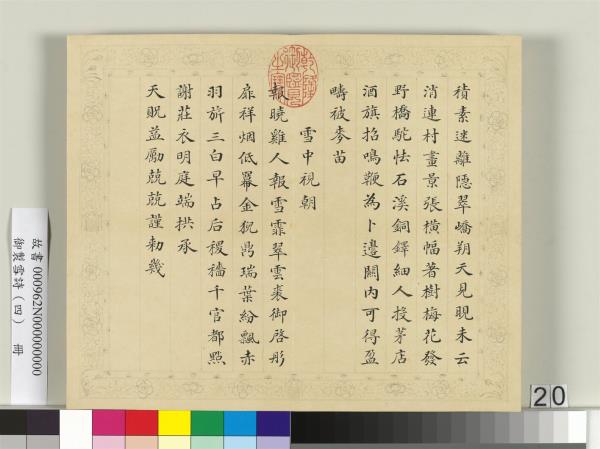 積素迷離隱翠嶠朔天見晛未云
消連村畫景張橫幅著樹梅花發
野橋駝怯石溪銅鐸細人投茅店
酒旗招鳴鞭為卜邊關內可得盈
疇被麥苗
雪中視朝
報曉雞人報雪霏翠雲裘御啓彤
扉祥烟低羃金猊鼎瑞葉紛飄赤
羽旂三白早占后稷穡千官都點
謝莊衣明庭端拱承
天貺益勵兢兢謹勑幾
乾隆御覽之寶
故書000962N000000000
御製雪詩(四) 冊
20